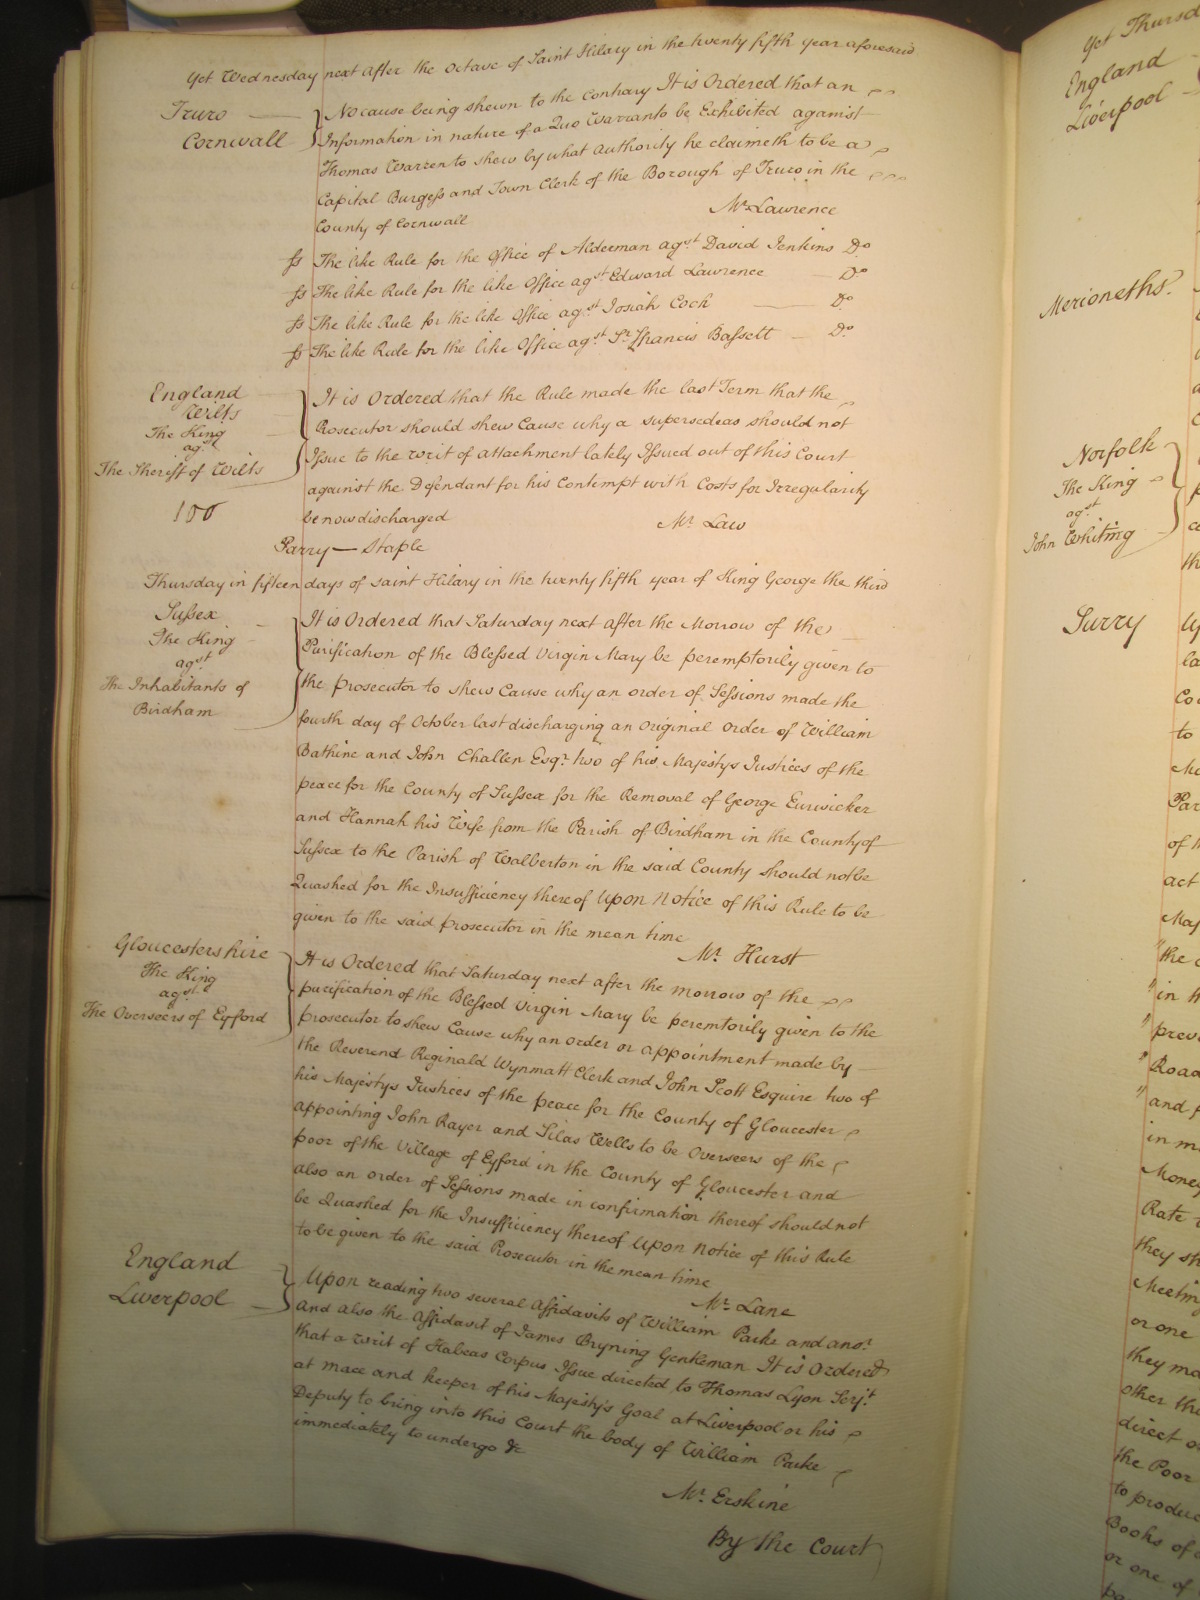 Yet Wednesday next after the Octave of Saint Hilary in the twenty fifth year aforesaid
Truro
Cornwall
No cause being shewn to the contrary It is Ordered that an
Information in nature of a Quo Warranto be Exhibited against
Thomas Warren to shew by what authority he claimeth to be a
Capital Burgess and Town Clerk of the Borough of Truro in the
County of Cornwall
Mr. Lawrence
ss The like Rule for the Office of Alderman agst. David Jenkins Do
ss The like Rule for the like Office agst. Edward Lawrence — Do.
ss The like Rule for the like Office agst. Josiah Cock — Do.
ss The like Rule for the like Office agst. Sr. Francis Bassett — Do.
England
Wilts
The King
agst
The Sheriff of Wilts
It is Ordered that the Rule made the last Term that the
Rosecutor should shew Cause why a supersedeas should not
Issue to the writ of attachment lately Issued out of this Court
against the Defendant for his Contempt with Costs for Irregularity
be now discharged
Mr. Law
100
Parry — Staple
Thursday in fifteen days of saint Hilary in the twenty fifth year of King George the third
Sussex
The King
agst
The Inhabitants of
Birdham
It is Ordered that Saturday next after the Morrow of the
Purification of the Blessed Virgin Mary be peremptorily given to
the prosecutor to shew Cause why an order of Sessions made the
fourth day of October last discharging an Original order of William
Bathine and John Challen Esqr. two of his Majestys Justices of the
peace for the County of Sussex for the Removal of George Eurwicker
and Hannah his Wife from the Parish of Birdham in the County of
Sussex to the Parish of Walberton in the said County should not be
Quashed for the Insufficiency thereof Upon Notice of this Rule to be
given to the said prosecutor in the mean time
Mr. Hurst
Gloucestershire
The King
agst.
The Overseers of Eyford
It is Ordered that Saturday next after the morrow of the
purification of the Blessed Virgin Mary be peremtorily given to the
prosecutor to shew Cause why an order or appointment made by
the Reverend Reginald Wynmatt Clerk and John Scott Esquire two of
his Majestys Justices of the peace for the County of Gloucester
appointing John Rayer and Silas Wells to be Overseers of the
poor of the Village of Eyford in the County of Gloucester and
also an order of Sessions made in confirmation thereof should not
be Quashed for the Insufficiency thereof Upon Notice of this Rule
to be given to the said Prosecutor in the mean time
Mr. Lane
England
Liverpool
Upon reading two several Affidavits of William Parke and anor.
and also the Affidavit of James Bryning Gentleman It is Ordered
that a writ of Habeas Corpus Issue directed to Thomas Lyon Serjt.
at mace and keeper of his Majesty's Goal at Liverpool or his
Deputy to bring into this Court the body of William Parke
immediately to undergo &c
Mr. Erskine
By the Court
Yet Thursd
England
Liverpool
Merioneths.
Norfolk
The King
agst.
John Whiting
Surry
la
Co
to
Par
of
act
Maj
the
in
prev
Road
and
in m
Money
Rate
they sh
Meeting
or one
they ma
other the
direct o
the Poor
to produc
Books of
or one of